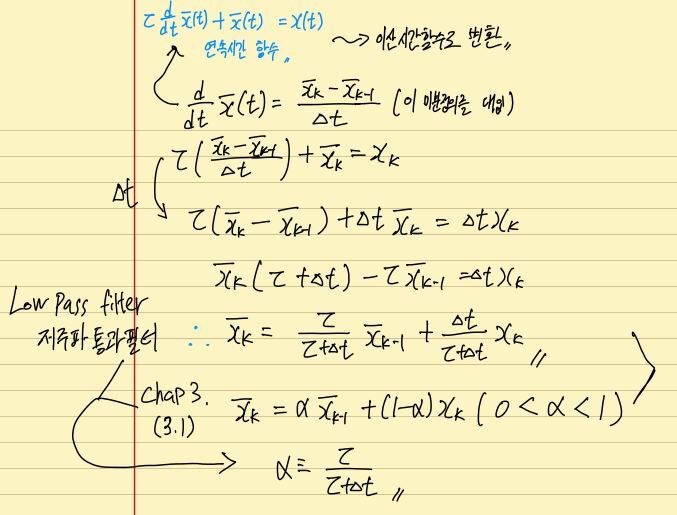 τ d/dt x̄(t) + x̄(t) = x(t)
연속시간 함수 〃 ~> 이산시간함수로 변환 〃
d/dt x̄(t) = (x̄ₖ - x̄ₖ₋₁)/Δt (이 미분정의를 대입)
τ((x̄ₖ - x̄ₖ₋₁)/Δt) + x̄ₖ = xₖ
Δt
τ(x̄ₖ - x̄ₖ₋₁) + Δt x̄ₖ = Δt xₖ
x̄ₖ(τ+Δt) - τx̄ₖ₋₁ = Δt xₖ
Low Pass filter
저주파 통과필터
∴ x̄ₖ = τ/(τ+Δt) x̄ₖ₋₁ + Δt/(τ+Δt) xₖ 〃
Chap 3.
(3.1)
x̄ₖ = α x̄ₖ₋₁ + (1-α)xₖ (0 < α < 1)
α ≡ τ/(τ+Δt) 〃